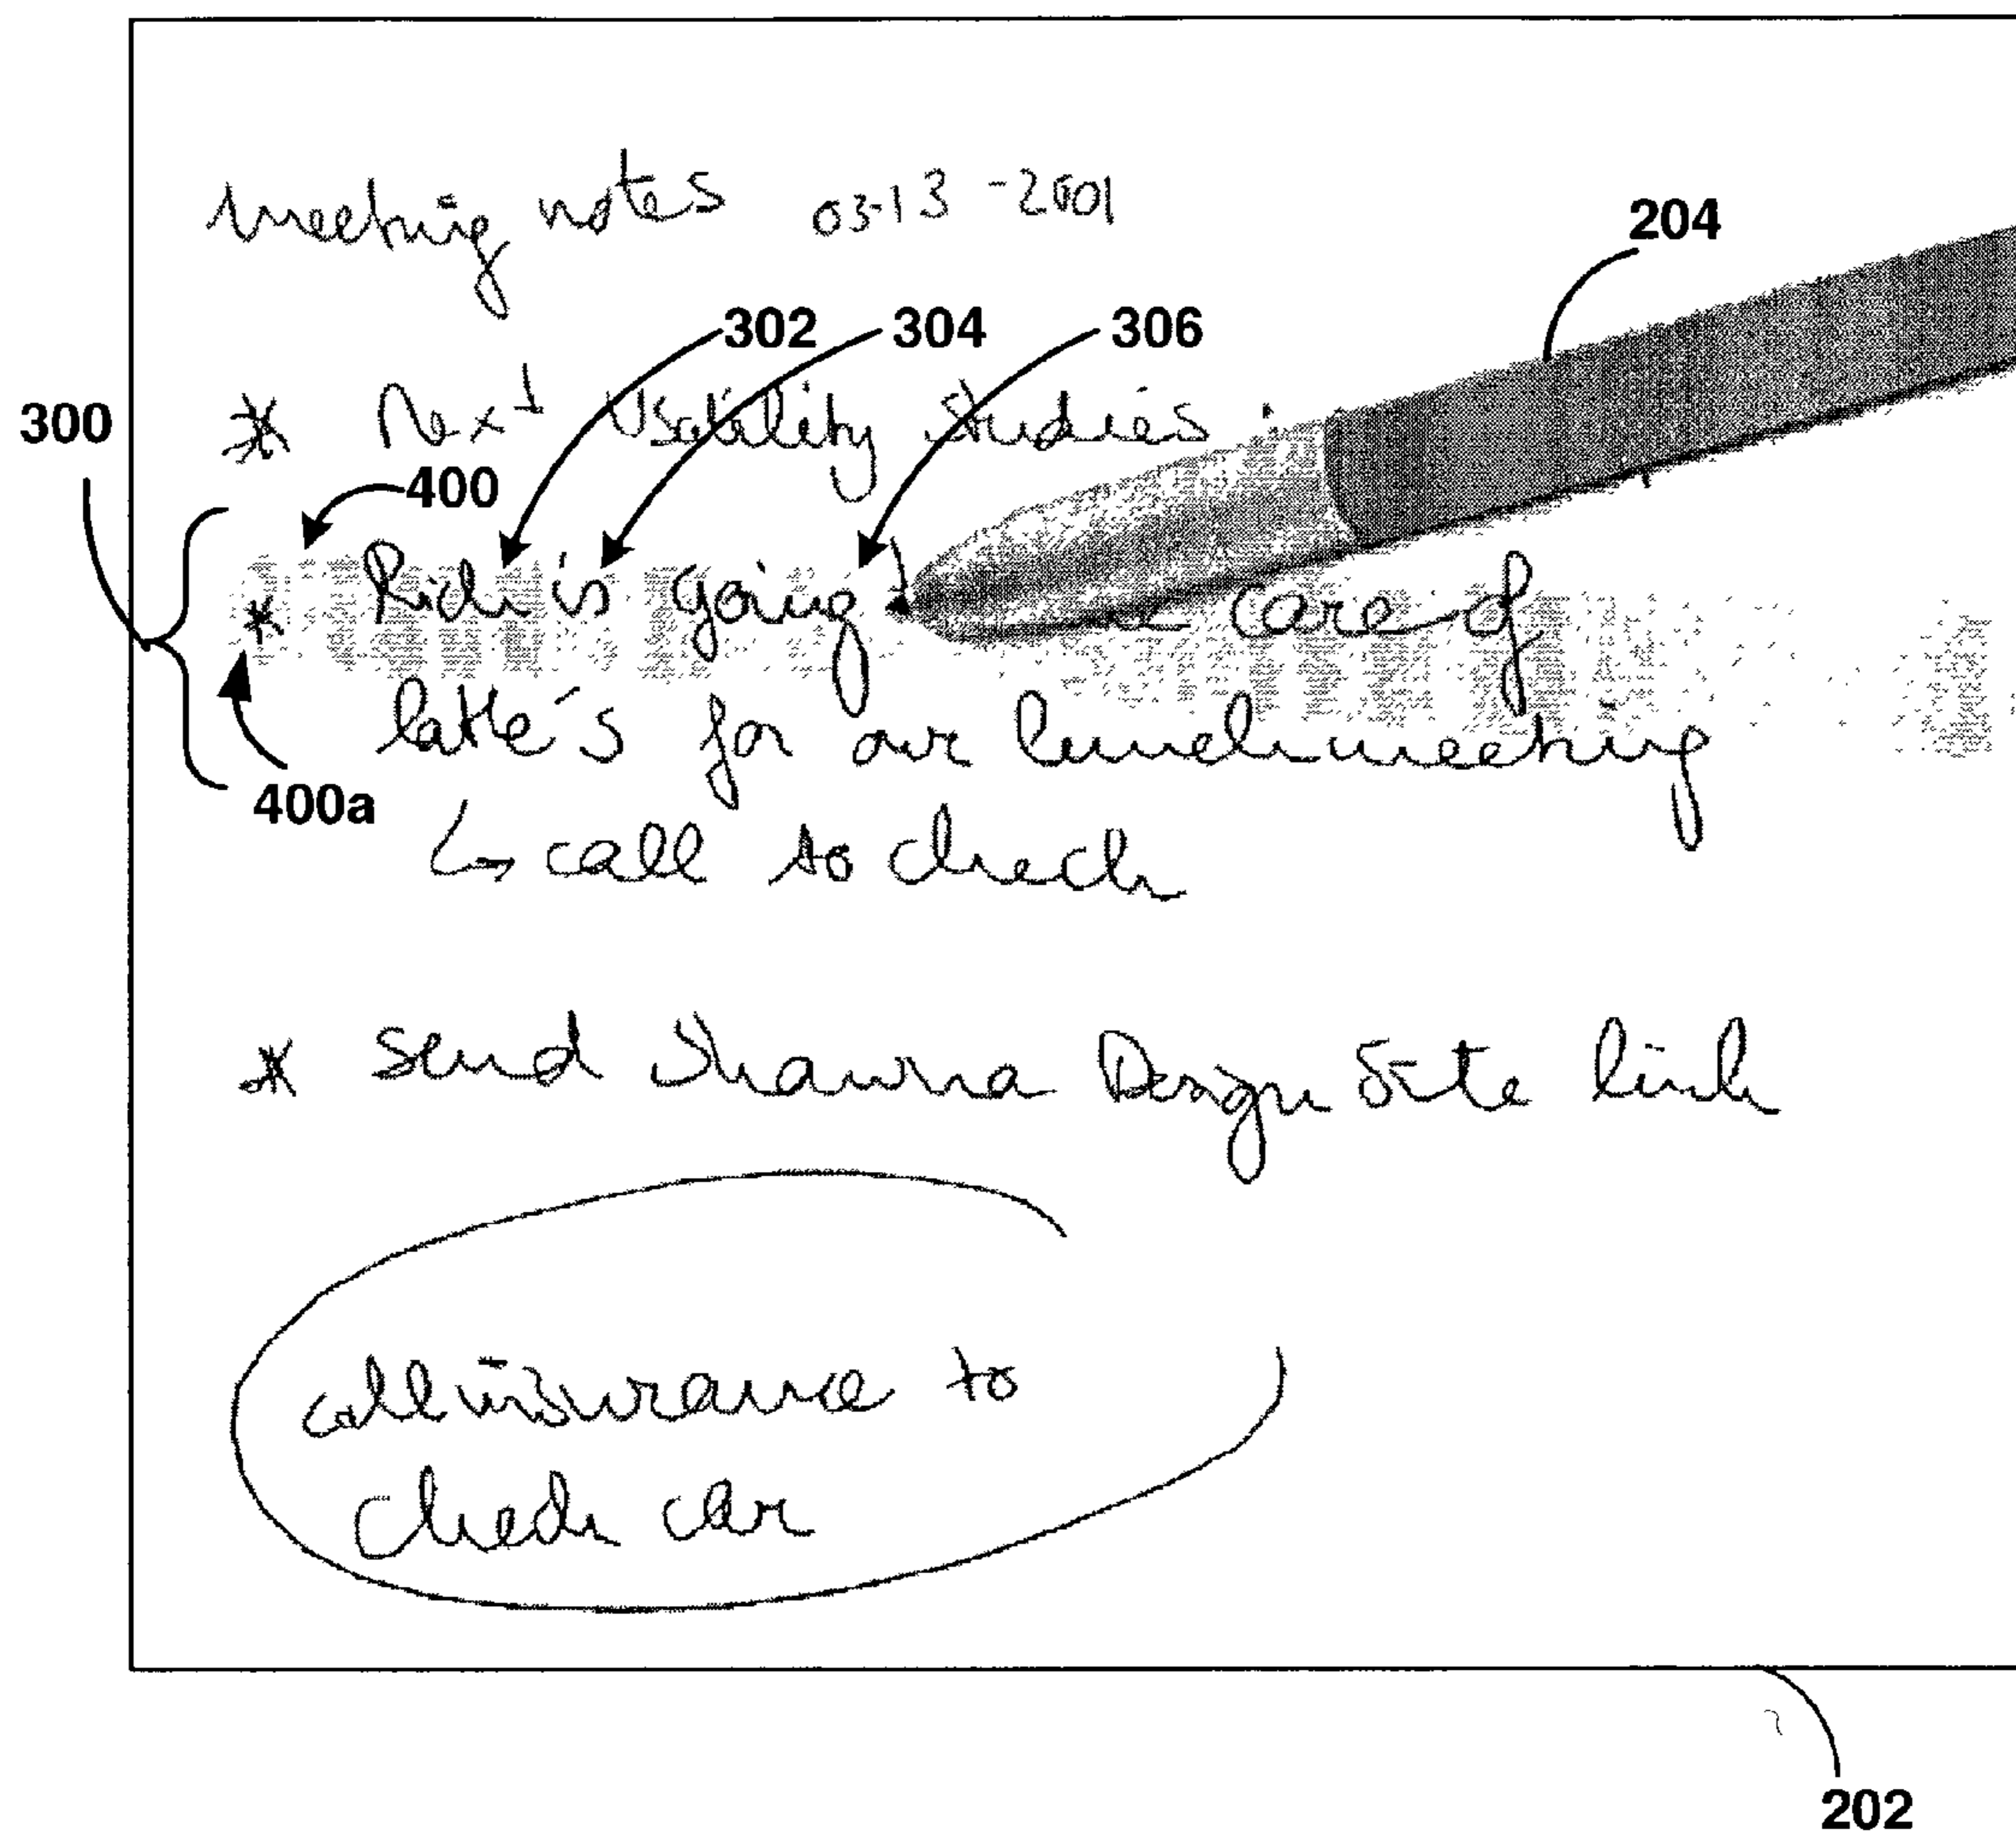 meeting notes 03-13-2001
204
302 304 306
300
* Next Usability Studies
400
* Rich is going care of
latte's for our lunch meeting
400a
↳ call to check
* Send Shawna Design Site link
call insurance to
check car
202